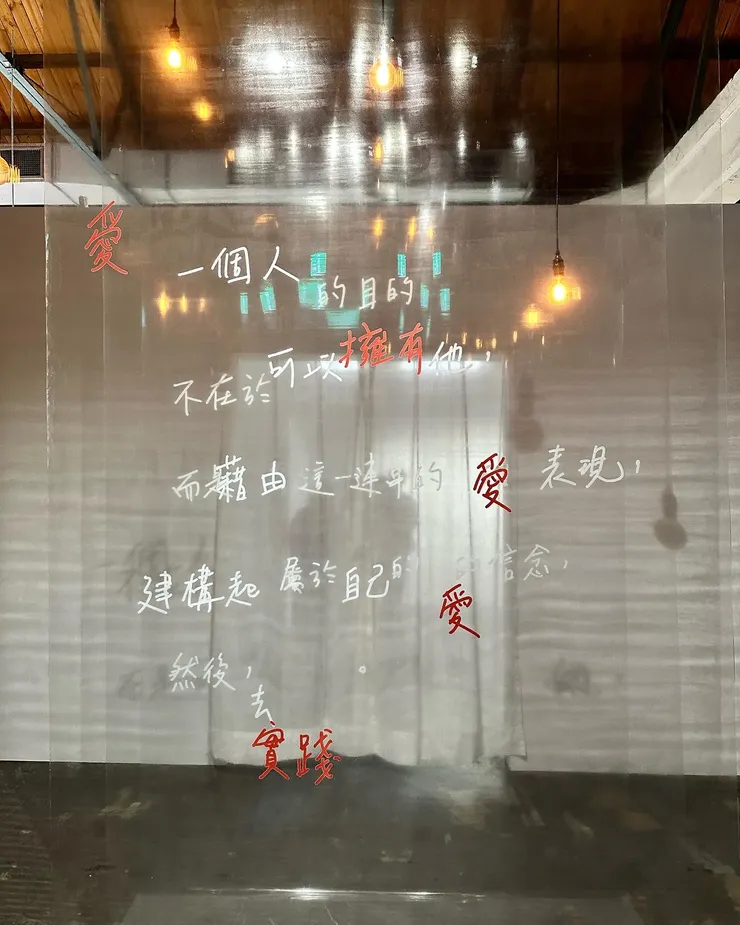 愛一個人的目的
不在於可以擁有他，
而藉由這一連串的愛表現，
建構起屬於自己的愛的信念，
然後，去實踐。